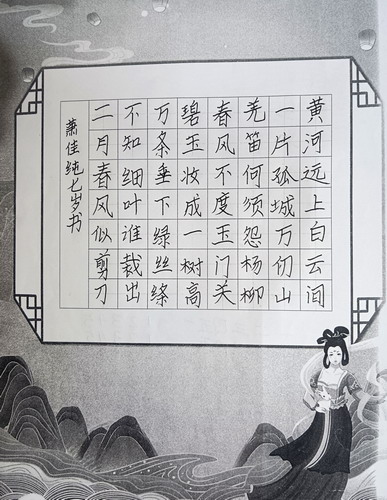 黄河远上白云间
一片孤城万仞山
羌笛何须怨杨柳
春风不度玉门关
碧玉妆成一树高
万条垂下绿丝绦
不知细叶谁裁出
二月春风似剪刀
萧佳纯七岁书